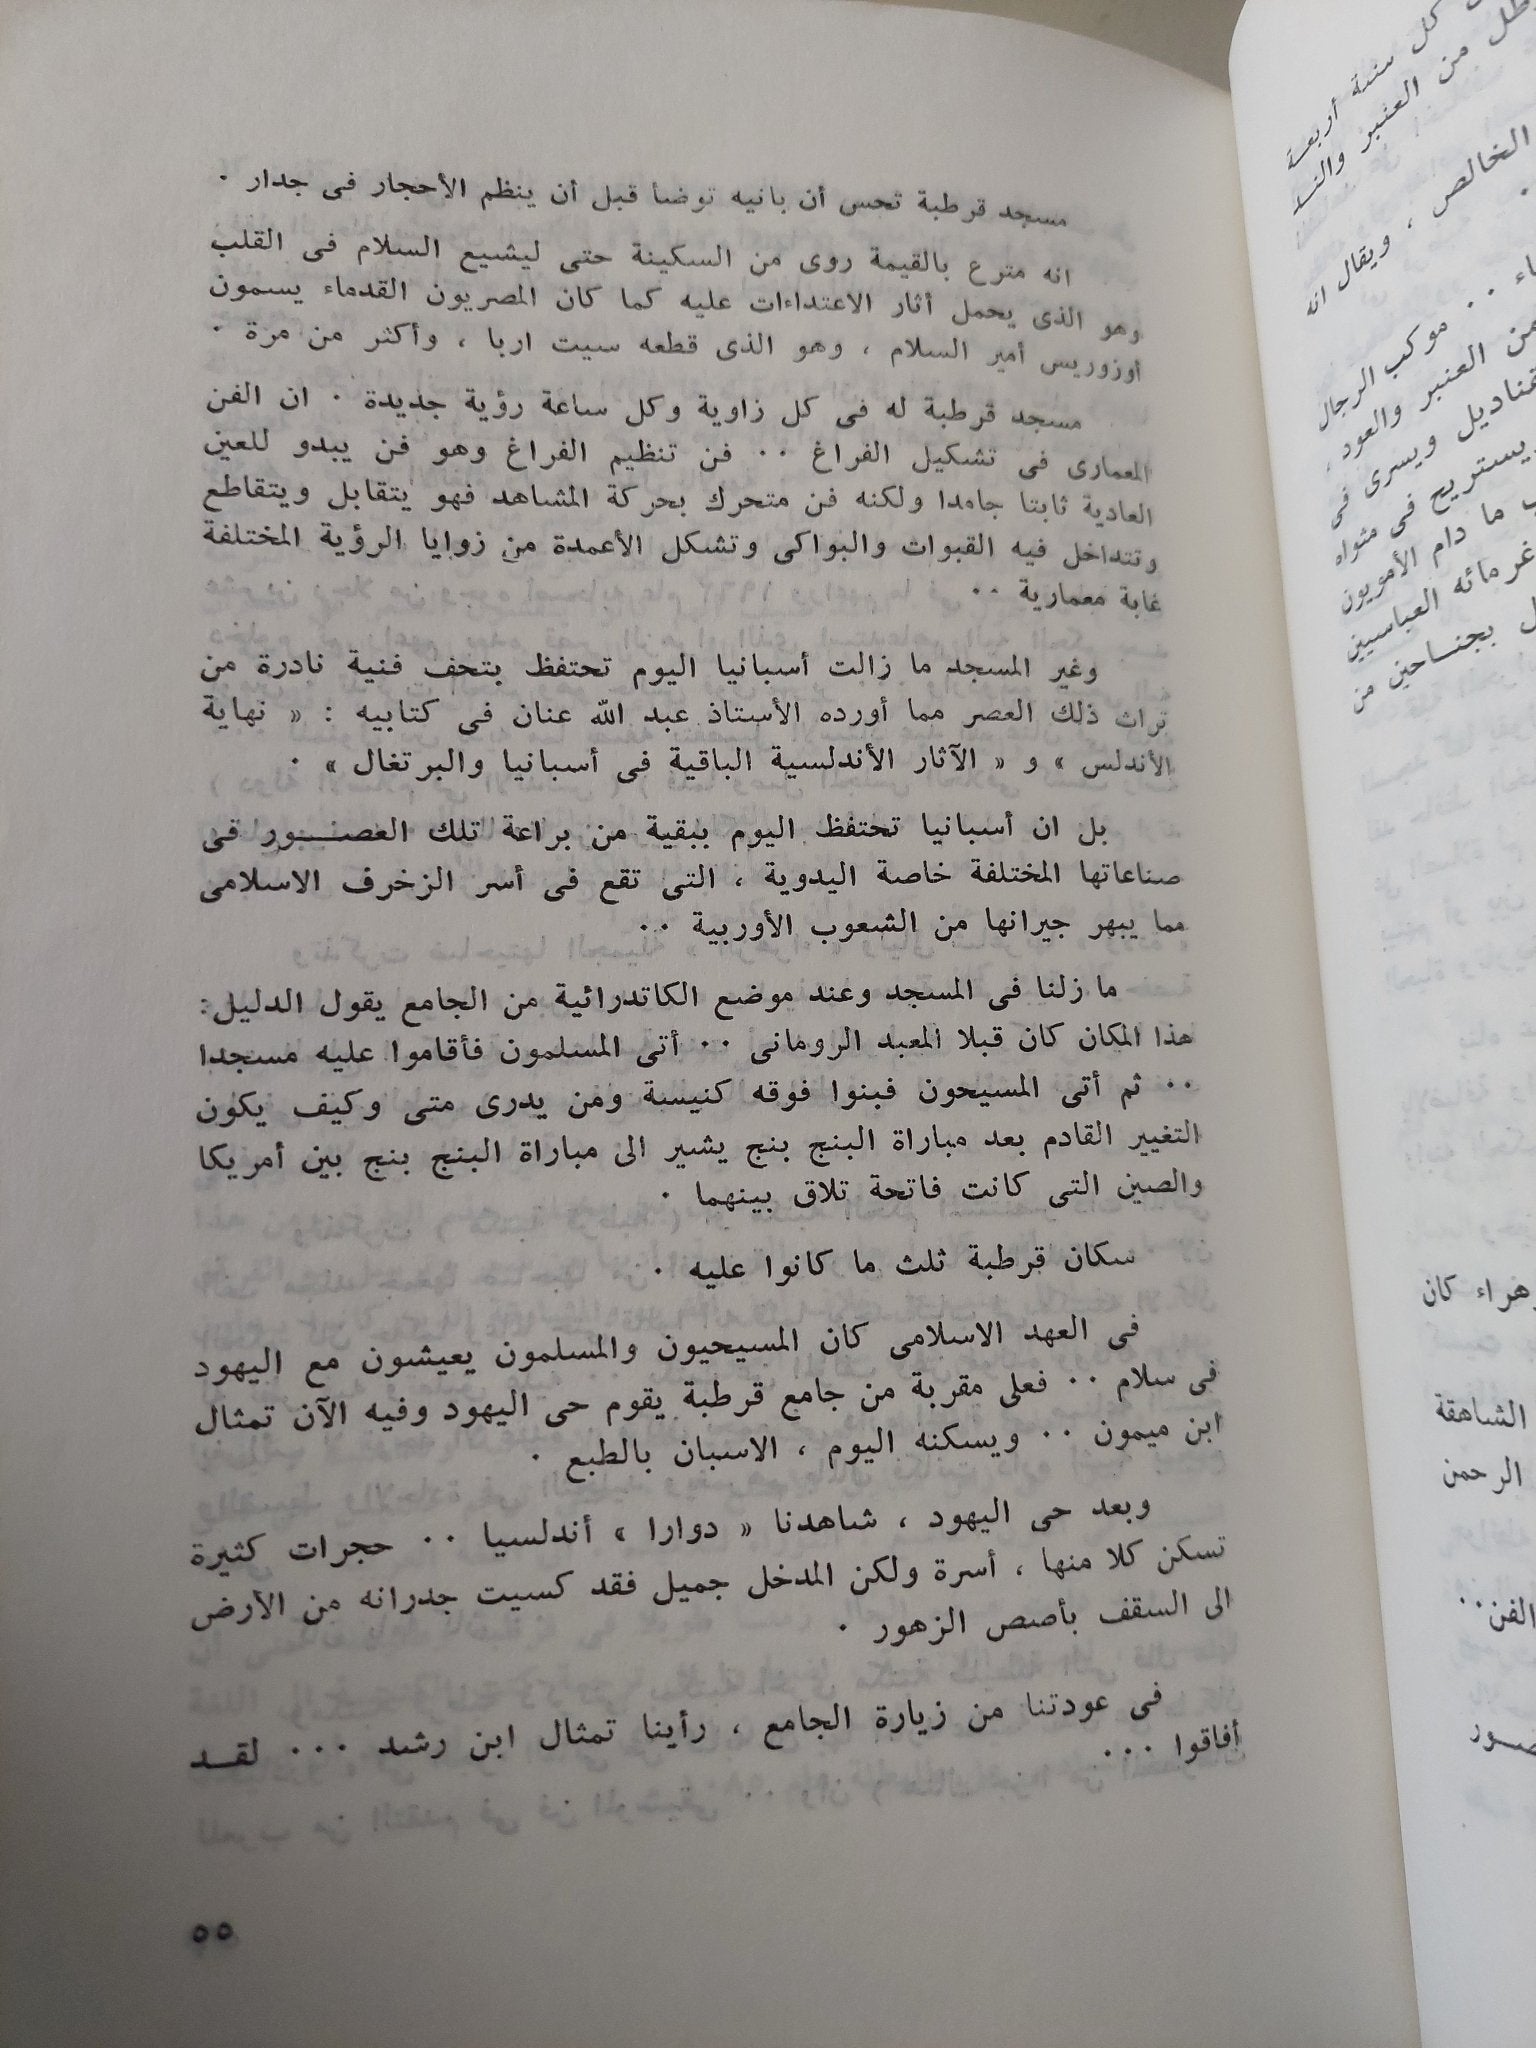 مسجد قرطبة تحس أن بانيه توضأ قبل أن ينظم الأحجار فى جدار ٠
انه مترع بالقيمة روى من السكينة حتى ليشيع السلام فى القلب
وهو الذى يحمل أثار الاعتداءات عليه كما كان المصريون القدماء يسمون
أوزوريس أمير السلام ، وهو الذى قطعه سيت اربا ، وأكثر من مرة ٠
مسجد قرطبة له فى كل زاوية وكل ساعة رؤية جديدة ٠ ان الفن
المعمارى فى تشكيل الفراغ ٠٠ فن تنظيم الفراغ وهو فن يبدو للعين
العادية ثابتا جامدا ولكنه فن متحرك بحركة المشاهد فهو يتقابل ويتقاطع
وتتداخل فيه القبوات والبواكى وتشكل الأعمدة من زوايا الرؤية المختلفة
غابة معمارية ٠٠
وغير المسجد ما زالت أسبانيا اليوم تحتفظ بتحف فنية نادرة من
تراث ذلك العصر مما أورده الأستاذ عبد الله عنان فى كتابيه : « نهاية
الأندلس » و « الآثار الأندلسية الباقية فى أسبانيا والبرتغال » ٠
بل ان أسبانيا تحتفظ اليوم ببقية من براعة تلك العصور فى
صناعاتها المختلفة خاصة اليدوية ، التى تقع فى أسر الزخرف الاسلامى
مما يبهر جيرانها من الشعوب الأوربية ٠٠
ما زلنا فى المسجد وعند موضع الكاتدرائية من الجامع يقول الدليل :
هذا المكان كان قبلا المعبد الرومانى ٠٠ أتى المسلمون فأقاموا عليه مسجدا
٠٠ ثم أتى المسيحون فبنوا فوقه كنيسة ومن يدرى متى وكيف يكون
التغيير القادم بعد مباراة البنج بنج يشير الى مباراة البنج بنج بين أمريكا
والصين التى كانت فاتحة تلاق بينهما ٠
سكان قرطبة ثلث ما كانوا عليه ٠
فى العهد الاسلامى كان المسيحيون والمسلمون يعيشون مع اليهود
فى سلام ٠٠ فعلى مقربة من جامع قرطبة يقوم حى اليهود وفيه الآن تمثال
ابن ميمون ٠٠ ويسكنه اليوم ، الاسبان بالطبع ٠
وبعد حى اليهود ، شاهدنا « دوارا » أندلسيا ٠٠ حجرات كثيرة
تسكن كلا منها ، أسرة ولكن المدخل جميل فقد كسيت جدرانه من الأرض
الى السقف بأصص الزهور ٠
فى عودتنا من زيارة الجامع ، رأينا تمثال ابن رشد ٠٠٠ لقد
أفاقوا ٠٠٠
٥٥
كل سنة أربعة
من العنبر والند
الخالص ، ويقال انه
٠٠ موكب الرجال
من العنبر والعود ،
ويسرى فى
يستريح فى مثواه
ما دام الأمويون
غرمائه العباسيين
بجناحين من
كان
الشاهقة
الرحمن
الفن ٠٠